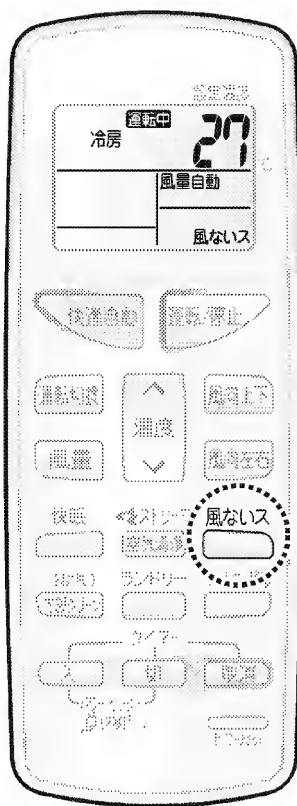 運転中
冷房 27
℃
風量自動
風ないス
快適自動 運転/停止
運転切換 温度 風向上下
風量 風向左右
快眠 ストリーマ 風ないス
空気清浄
ランドリー
タイマー
入 切 取消